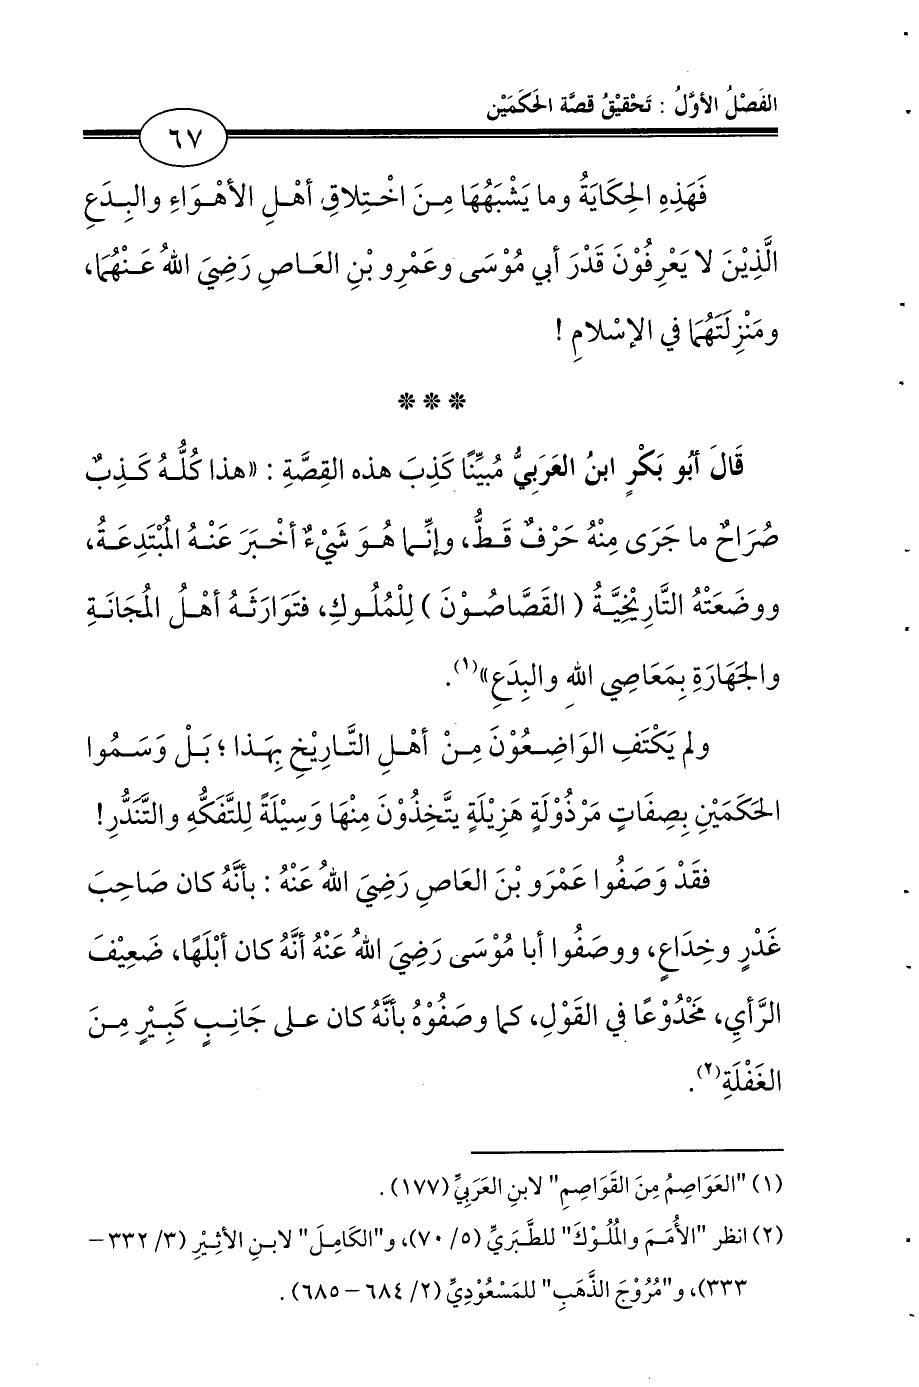 الفَصْلُ الأوَّلُ : تَحْقِيْقُ قصَّة الحَكَمَيْن
٦٧
فَهَذِهِ الحِكَايَةُ وما يَشْبَهُهَا مِنَ اخْتِلاقِ أهْلِ الأهْوَاءِ والبِدَعِ
الَّذِيْنَ لا يَعْرِفُوْنَ قَدْرَ أبي مُوْسَى وعَمْرِو بْنِ العَاصِ رَضِيَ اللهُ عَنْهُمَا،
ومَنْزِلَتَهُمَا في الإسْلامِ !
***
قَالَ أبُو بَكْرٍ ابنُ العَرَبيُّ مُبيِّنًا كَذِبَ هذه القِصَّةِ : «هذا كُلُّهُ كَذِبٌ
صُرَاحٌ ما جَرَى مِنْهُ حَرْفٌ قَطُّ، وإنَّما هُوَ شَيْءٌ أخْبَرَ عَنْهُ المُبْتَدِعَةُ،
ووضَعَتْهُ التَّارِيْخِيَّةُ ( القَصَّاصُوْنَ ) لِلْمُلُوكِ، فتَوَارَثَهُ أهْلُ المُجَانَةِ
والجَهَارَةِ بِمَعَاصِي اللهِ والبِدَعِ»(١).
ولم يَكْتَفِ الوَاضِعُوْنَ مِنْ أهْلِ التَّارِيْخِ بِهَذا ؛ بَلْ وَسَمُوا
الحَكَمَيْنِ بِصِفَاتٍ مَرْذُوْلَةٍ هَزِيْلَةٍ يتَّخِذُوْنَ مِنْهَا وَسِيْلَةً للتَّفَكُّهِ والتَّنَدُّرِ!
فقَدْ وَصَفُوا عَمْرَو بْنَ العَاصِ رَضِيَ اللهُ عَنْهُ : بأنَّهُ كان صَاحِبَ
غَدْرٍ وخِدَاعٍ، ووصَفُوا أبا مُوْسَى رَضِيَ اللهُ عَنْهُ أنَّهُ كان أبْلَهًا، ضَعِيْفَ
الرَّأيِ، مَخْدُوْعًا في القَوْلِ، كما وصَفُوْهُ بأنَّهُ كان على جَانِبٍ كَبِيْرٍ مِنَ
الغَفْلَةِ(٢).
(١) "العَوَاصِمُ مِنَ القَوَاصِمِ" لابنِ العَرَبيِّ (١٧٧) .
(٢) انظر "الأُمَمَ والمُلُوْكَ" للطَّبَرِيِّ (٥/ ٧٠)، و"الكَامِلَ" لابنِ الأثِيْرِ (٣/ ٣٣٢ –
٣٣٣)، و"مُرُوْجَ الذَّهَبِ" للمَسْعُوْدِيِّ (٢/ ٦٨٤ – ٦٨٥) .